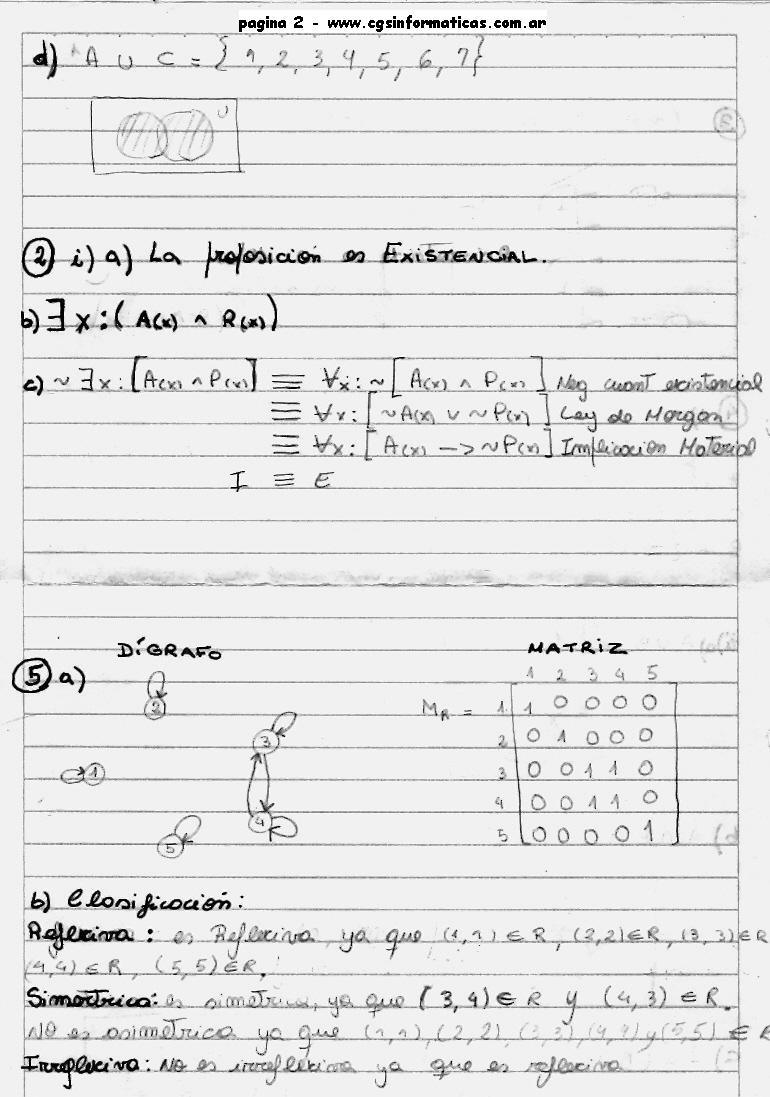 pagina 2 - www.cgsinformaticas.com.ar
d) A ∪ C = { 1, 2, 3, 4, 5, 6, 7}
U
② i) a) La proposición es EXISTENCIAL.
b) ∃ x : ( A(x) ∧ R(x) )
c) ~ ∃ x : [A(x) ∧ P(x)] ≡ ∀x : ~ [ A(x) ∧ P(x) ] Neg cuant existencial
≡ ∀x : [ ~A(x) ∨ ~P(x) ] Ley de Morgan
≡ ∀x : [ A(x) -> ~P(x) ] Implicacion Material
I ≡ E
⑤ a) DÍGRAFO MATRIZ
1 2 3 4 5
M_R = 1 1 0 0 0 0
2 0 1 0 0 0
3 0 0 1 1 0
4 0 0 1 1 0
5 0 0 0 0 1
2
3
1
4
5
b) Clasificación:
Reflexiva : es Reflexiva, ya que (1,1) ∈ R, (2,2) ∈ R, (3,3) ∈ R
(4,4) ∈ R, (5,5) ∈ R.
Simetrica: es simetrica, ya que (3,4) ∈ R y (4,3) ∈ R.
No es asimetrica ya que (1,1), (2,2), (3,3), (4,4) y (5,5) ∈ R
Irreflexiva: No es irreflexiva ya que es reflexiva